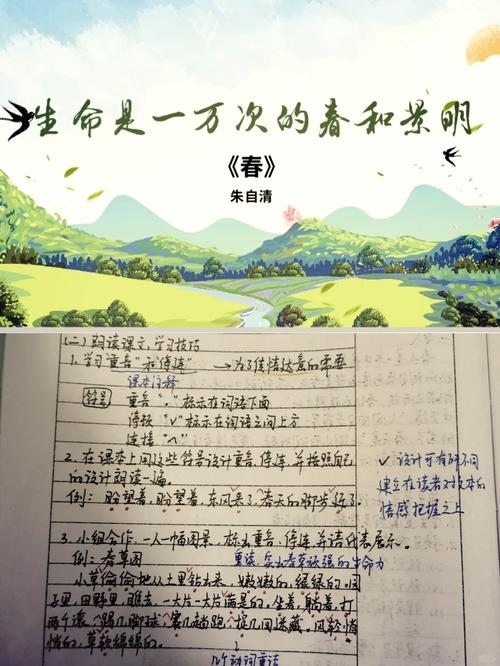 生命是一万次的春和景明
《春》
朱自清
(二) 朗读课文,学习技巧
1. 学习"重音"和"停连" →为了传情达意的需要
课本注释
符号 重音"."标示在词语下面
停顿"∨"标示在词语之间上方
连接"^"
2. 在课本上用这些符号设计重音、停连,并按照自己
的设计朗读一篇。
✓ 设计可有所不同
建立在读者对文本的
情感把握之上
例:盼望着,盼望着,东风来了,春天的脚步近了。
3. 小组合作,一人一幅图景,标出重音、停连,并请代表展示。
例:春草图
重读,突出春草顽强的生命力
小草偷偷地从土里钻出来,嫩嫩的,绿绿的。园
子里,田野里,瞧去,一大片一大片满是的。坐着,躺着,打
两个滚,踢几脚球,赛几趟跑,捉几回迷藏。风轻悄
悄的,草软绵绵的。
动词重读